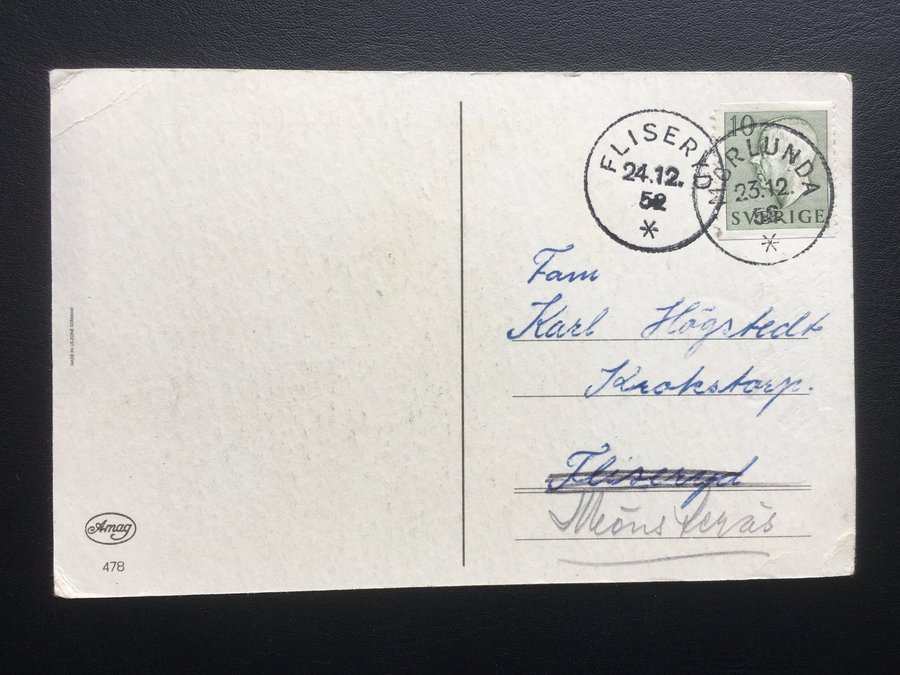 FLISERYD
24.12.
52
MÖRLUNDA
23.12.
52
10
SVERIGE
Fam
Karl Högstedt
Krokstorp.
Fliseryd
Mönsterås
MADE IN US-ZONE GERMANY
Amag
478